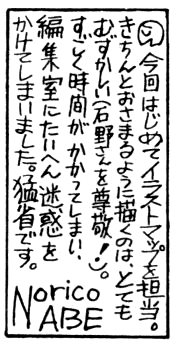 今回はじめてイラストマップを担当。
きちんとおさまるように描くのは、とても
むずかしい(石野さんを尊敬!)。
すごく時間がかかってしまい、
編集室にたいへん迷惑を
かけてしまいました。猛省です。
Norico
ABE